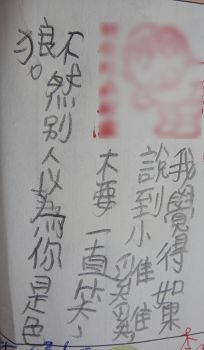 我覺得如果
說到小雞雞
不要一直笑，
不然別人以為你是色
狼。